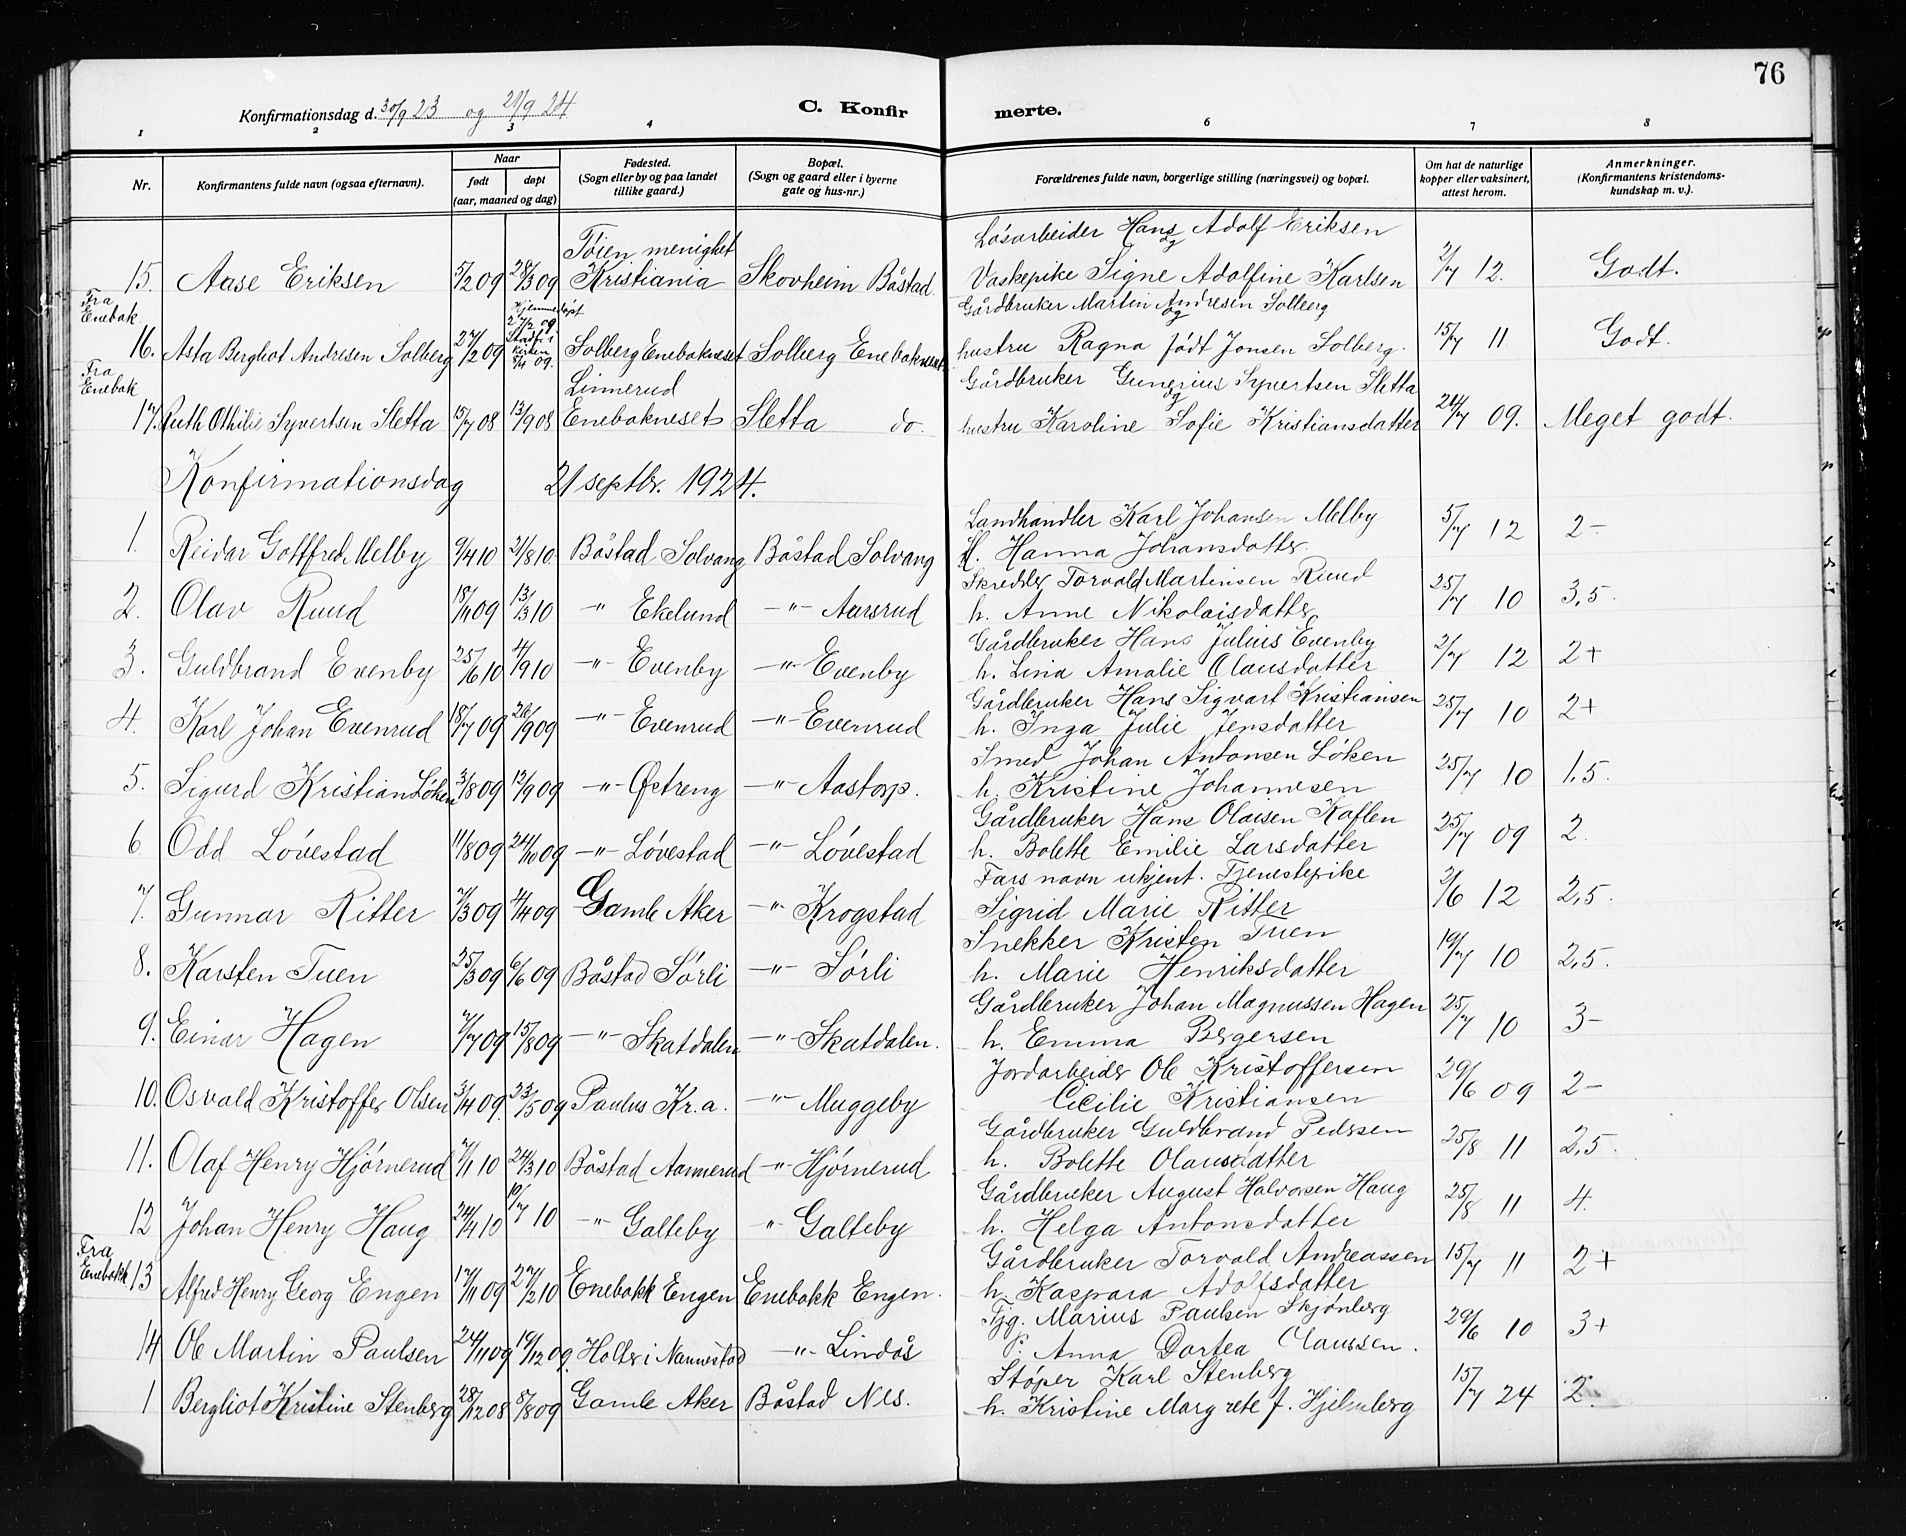 76
Konfirmationsdag d. 30/9 23 og 21/9 24 C. Konfir merte.
1 2 3 4 5 6 7 8
Nr. Konfirmantens fulde navn (ogsaa efternavn). Naar født døpt (aar, maaned og dag) Fødested. (Sogn eller by og paa landet tillike gaard.) Bopæl. (Sogn og gaard eller i byerne gate og hus-nr.) Forældrenes fulde navn, borgerlige stilling (næringsvei) og bopæl. Om hat de naturlige kopper eller vaksinert, attest herom. Anmerkninger. (Konfirmantens kristendomskundskap m. v.).
Tøien menighet Løsarbeider Hans Adolf Eriksen og
15. Aase Eriksen 5/2 09 28/3 09 Kristiania Skovheim Båstad. Vaskepike Signe Adolfine Karlsen 2/7 12. Godt.
Fra Enebak Hjemmedøpt 27/2 09 Stadf. i kirken 8/4 09. Gårdbruker Marten Andresen Solberg og
16. Asta Bergliot Andresen Solberg 27/2 09 Solberg Enebakneset Solberg Enebakneset hustru Ragna født Jonsen Solberg. 15/7 11 Godt.
Fra Enebak Linnerud Gårdbruker Gunerius Syvertsen Sletta og
17. Ruth Othilie Syvertsen Sletta 15/7 08 13/9 08 Enebakneset Sletta do. hustru Karoline Sofie Kristiansdatter 24/7 09. Meget godt.
Konfirmationsdag 21 septbr. 1924.
Landhandler Karl Johansen Melby
1. Reidar Gottfred Melby 9/4 10 21/8 10 Båstad Solvang Båstad Solvang H. Hanna Johansdatter. 5/7 12 2-
Skredder Torvald Martinsen Ruud
2. Olav Ruud 18/11 09 13/3 10 -"- Ekelund -"- Aarsrud h. Anne Nikolaisdatter 25/7 10 3,5.
Gårdbruker Hans Julius Evenby
3. Guldbrand Evenby 25/6 10 4/9 10 -"- Evenby -"- Evenby h. Lina Amalie Olausdatter 2/7 12 2+
Gårdbruker Hans Sigvart Kristiansen
4. Karl Johan Evenrud 18/7 09 26/9 09 -"- Evenrud -"- Evenrud h. Inga Julie Jensdatter 25/7 10 2+
Smed Johan Antonsen Løken
5. Sigurd Kristian Løken 3/8 09 12/9 09 -"- Østreng -"- Aastorp. h. Kristine Johannesen 25/7 10 1,5.
Gårdbruker Hans Olaisen Kaflen
6 Odd Løvestad 11/8 09 24/10 09 -"- Løvestad -"- Løvestad h. Bolette Emilie Larsdatter 25/7 09 2.
Fars navn ukjent. Tjenestepike
7. Gunnar Ritter 7/3 09 4/4 09 Gamle Aker -"- Krogstad Sigrid Marie Ritter 2/6 12 2,5.
Snekker Kristen Tuen
8. Karsten Tuen 25/3 09 6/6 09 Båstad Sørli -"- Sørli h. Marie Henriksdatter 19/7 10 2,5.
Gårdbruker Johan Magnussen Hagen
9. Einar Hagen 7/7 09 15/8 09 -"- Skatdalen -"- Skatdalen. h. Emma Bergersen 25/7 10 3-
Jordarbeider Ole Kristoffersen
10. Osvald Kristoffer Olsen 3/4 09. 23/5 09 Paulus Kr.a. -"- Muggeby Cicilie Kristiansen 29/6 09 2-
Gårdbruker Guldbrand Pedersen
11. Olaf Henry Hjørnerud 7/1 10 24/3 10 Båstad Aannerud -"- Hjørnerud h. Bolette Olausdatter 25/8 11 2,5.
Gårdbruker August Halvorsen Haug
12 Johan Henry Haug 24/4 10 10/7 10 -"- Galteby " Galteby h. Helga Antonsdatter 25/8 11 4.
Fra Enebakk Gårdbruker Torvald Andreassen
13 Alfred Henry Georg Engen 17/11 09 27/2 10 Enebakk Engen Enebakk Engen. h. Kaspara Adolfsdatter 15/7 11 2+
Tjg. Marius Paulsen Skjønberg
14 Ole Martin Paulsen 24/11 09 19/12 09. Holter i Nannestad -"- Lindås P. Anna Dortea Claussen. 29/6 10 3+
Støper Karl Stenberg
1 Bergliot Kristine Stenberg 28/12 08 8/8 09 Gamle Aker Båstad Nes. h. Kristine Margrete f. Hjelmberg 15/7 24 2.